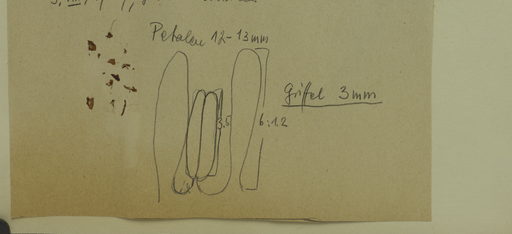 Petalen 12-13 mm
Griffel 3 mm
3.5
6:1.2